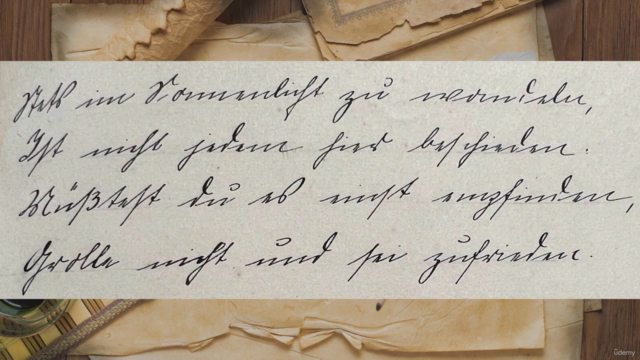 Stets im Sonnenlicht zu wandeln,
Ist nicht jedem hier beschieden.
Müßtest du es einst empfinden,
Grolle nicht und sei zufrieden.
ûdemy